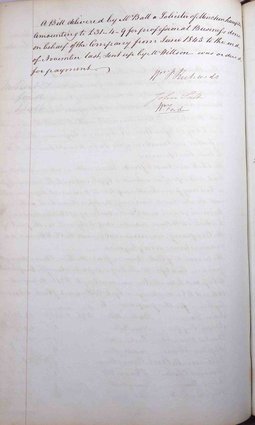 A Bill delivered by Mr Ball a Solicitor of Minchinhampton
Amounting to £31-4-9 for professional Business done
on behalf of the Company from June 1843 to the end
of November last, sent up by Mr Willson was ordered
for payment
Wm Richards
John
Wm